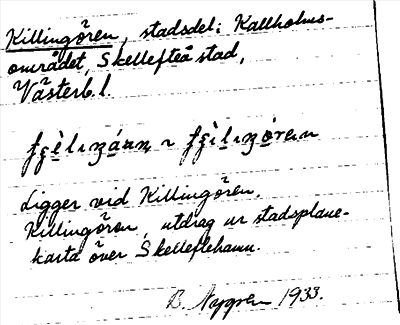 Killingören, stadsdel: Kallholms-
området, Skellefteå stad,
Västerb. l.
Ligger vid Killingören.
Killingören, utdrag ur stadsplane-
karta över Skelleftehamn.
B. Nygren 1933.